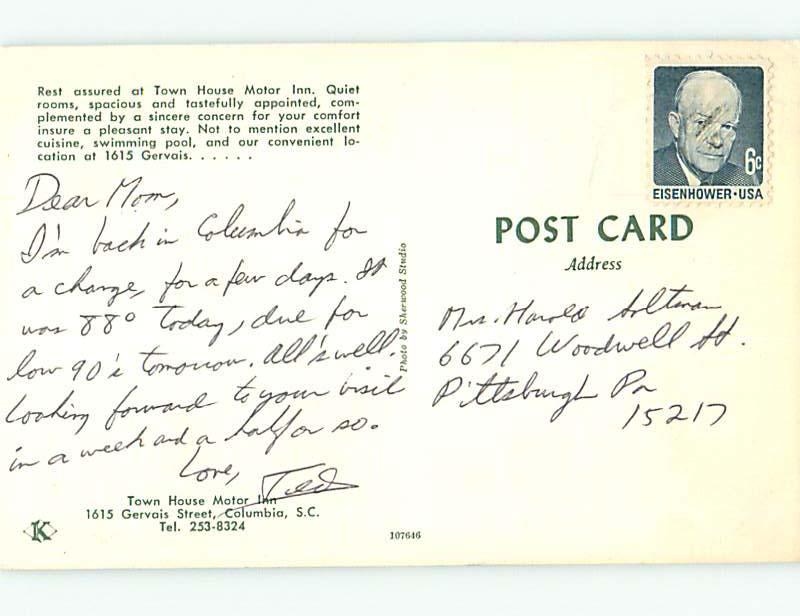 Rest assured at Town House Motor Inn. Quiet
rooms, spacious and tastefully appointed, com-
plemented by a sincere concern for your comfort
insure a pleasant stay. Not to mention excellent
cuisine, swimming pool, and our convenient lo-
cation at 1615 Gervais. . . . . .
Dear Mom,
I'm back in Columbia for
a change, for a few days. It
was 88° today, due for
low 90's tomorrow. All's well.
Looking forward to your visit
in a week and a half or so.
Love,
Ted
Town House Motor Inn
1615 Gervais Street, Columbia, S.C.
Tel. 253-8324
K
Photo by Sherwood Studio
107646
6c
EISENHOWER·USA
POST CARD
Address
Mrs. Harold Soltman
6671 Woodwell St.
Pittsburgh Pa
15217